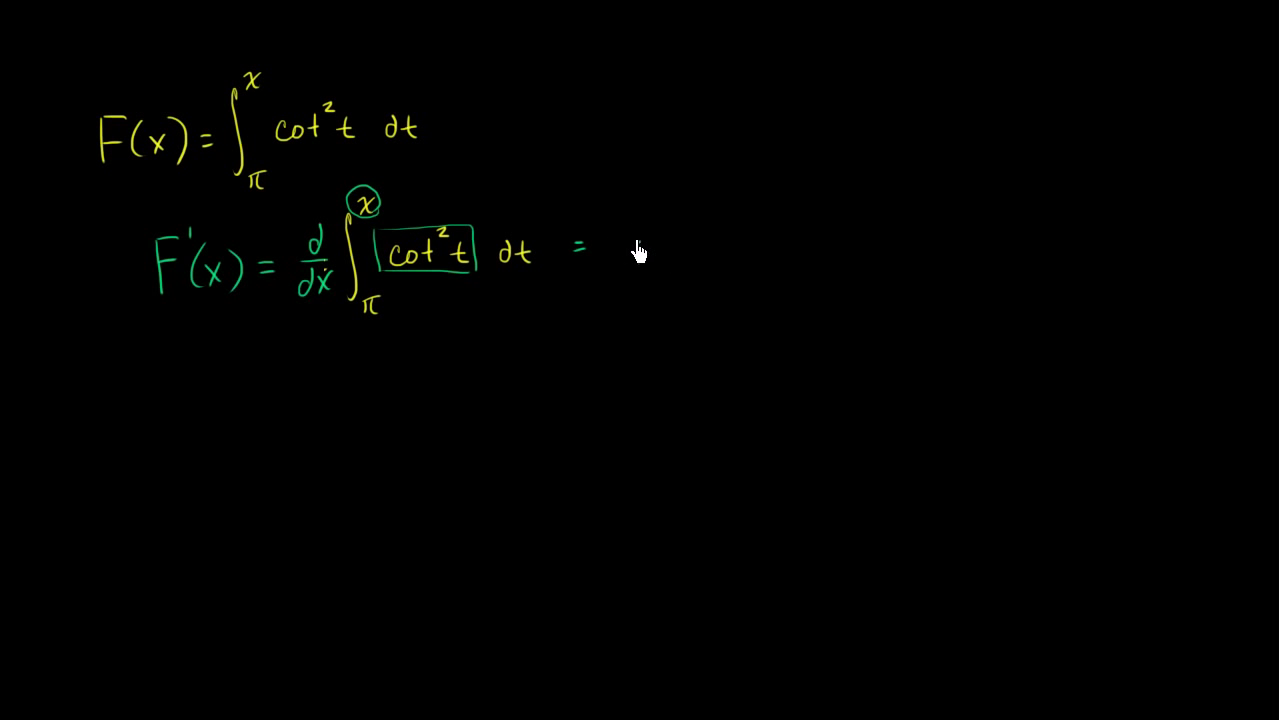 F(x) = ∫_π^x cot² t dt
F'(x) = d/dx ∫_π^x cot² t dt =